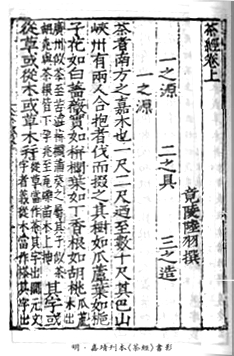 茶經卷上
竟陵陸羽撰
一之源　二之具　三之造
一之源
茶者南方之嘉木也一尺二尺迺至數十尺其巴山
峽州有兩人合抱者伐而掇之其樹如瓜蘆葉如梔
子花如白薔薇實如栟櫚葉如丁香根如胡桃
瓜蘆木出
廣州似茶至苦澀栟櫚蒲葵之屬其子似茶
胡桃與茶根皆下孕兆至瓦礫苗木上抽
其字或
從草或從木或草木并
從草當作茶其字出開元文
字者義從木當作搽其字出
明·嘉靖刊本《茶經》書影